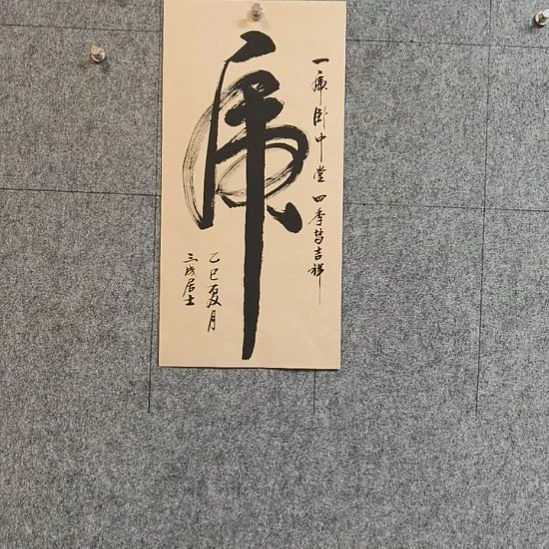 一虎卧中堂 四季皆吉祥
虎
乙巳夏月
三成居士